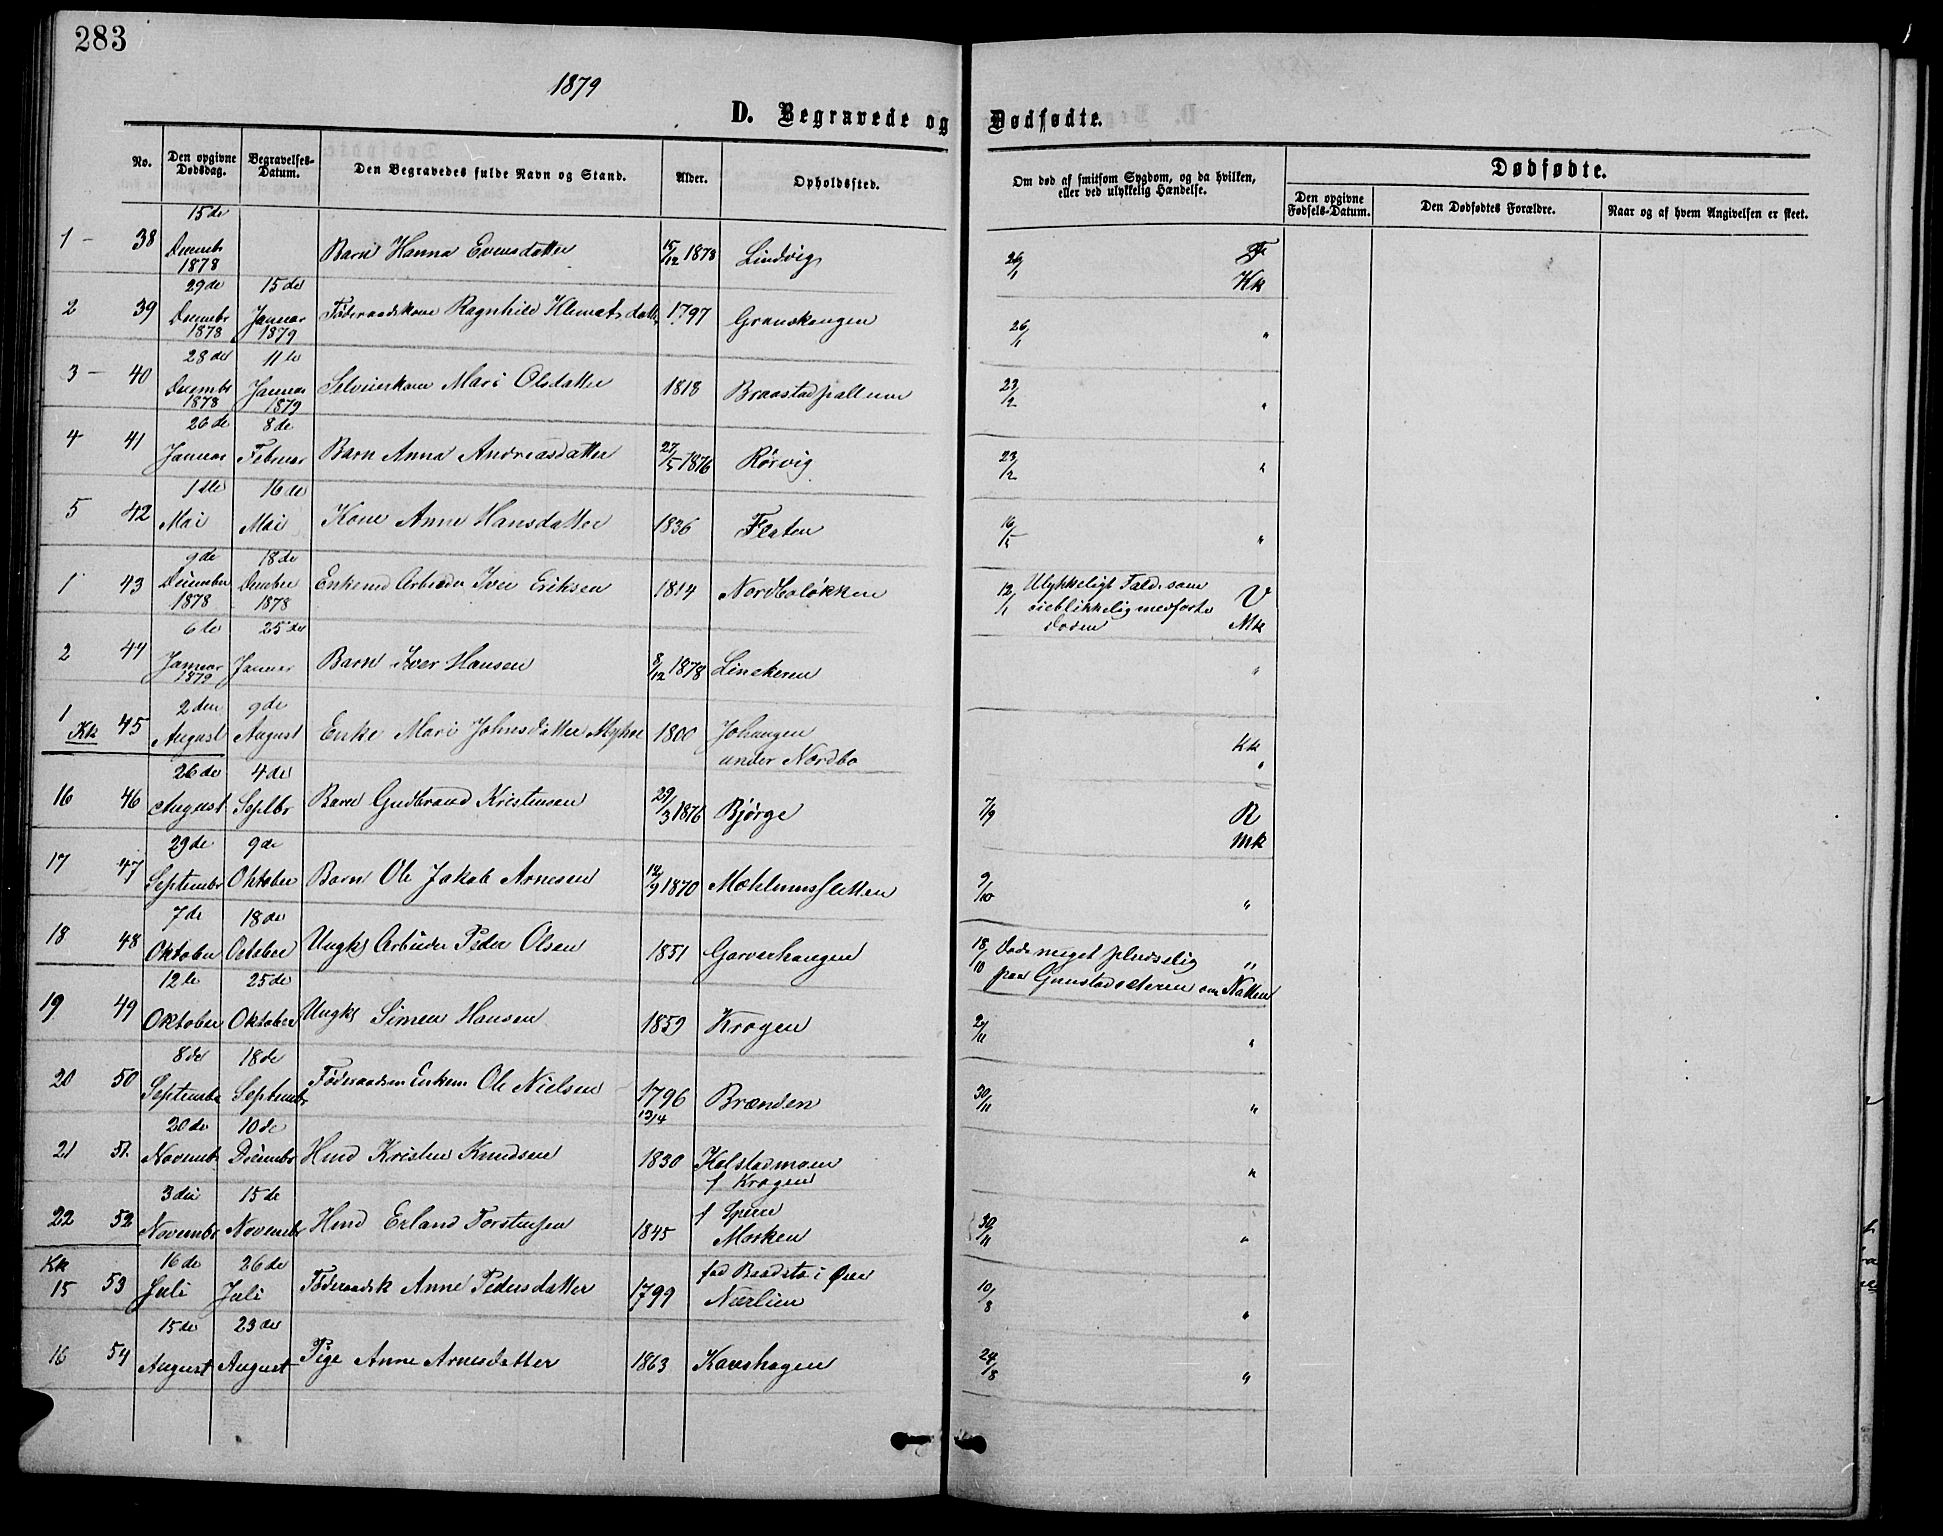 283
1879
D. Begravede og Dødfødte.
No.
Den opgivne Dødsdag.
Begravelses-Datum.
Den Begravedes fulde Navn og Stand.
Alder.
Opholdssted.
Om død af smitsom Sygdom, og da hvilken, eller ved ulykkelig Hændelse.
Dødfødte.
Den opgivne Fødsels-Datum.
Den Dødfødtes Forældre.
Naar og af hvem Angivelsen er skeet.
1 - 38 15de Decembr 1878 Barn Hanna Evensdatter 15/12 1878 Lindvig 26/1 F Kk
2 39 29de Decembr 1878 15de Januar 1879 Føderaadskone Ragnhild Klemetsdatter 1797 Granskaugen 26/1 "
3 - 40 28de Decembr 1878 11te Januar 1879 Selveierkone Mari Olsdatter 1818 23/2 "
4 41 26de Januar 8de Februar Barn Anna Andreasdatter 27/5 1876 Rørvig 23/2 "
5 42 1ste Mai 16de Mai Kone Anne Hansdatter 1836 Flaten 16/5 "
1 43 9de December 1878 18de December 1878 Enkemd Arbeider Iver Eriksen 1814 Nordboløkken 12/1 Ulykkeligt Fald som øieblikkelig medførte Døden V Mk
2 44 6te Januar 1879 25de Januar Barn Iver Hansen 8/12 1878 Linekeren "
1 Kk 45 2den August 9de August Enke Mari Johnsdatter Myhre 1800 Johaugen under Nordbo Kk "
16 46 26de August 4de Septbr Barn Gudbrand Kristensen 29/3 1876 Bjørge 7/9 R Mk
17 47 29de Septembr 9de Oktober Barn Ole Jakob Arnesen 12/9 1870 Mæhlumssletten 9/10 "
18 48 7de Oktober 18de October Ungk Arbeider Peder Olsen 1851 Garverhaugen 18/10 Døde meget pludselig paa Gunstadsæteren om Natten "
19 49 12te Oktober 25de Oktober Ungk Simen Hansen 1859 Krogen 2/11 "
20 50 8de Septembr 18de Septembr Føderaadsm Enkem Ole Nielsen 1796 13/4 Brænden 30/11 "
21 51. 20de Novembr 10de Decembr Hmd Kristen Knudsen 1830 Kolstadmoen f Krogen "
22 52 3die Novembr 15de Novembr Hmd Erland Torstensen 1845 f Morken 30/11 "
Kk 15 53 16de Juli 26de Juli Føderaadsk Anne Pedersdatter 1799 fød Baadsto i Øier Nærlien 10/8 "
16 54 15de August 23de August Pige Anne Arnesdatter 1863 Kavshagen 24/8 "